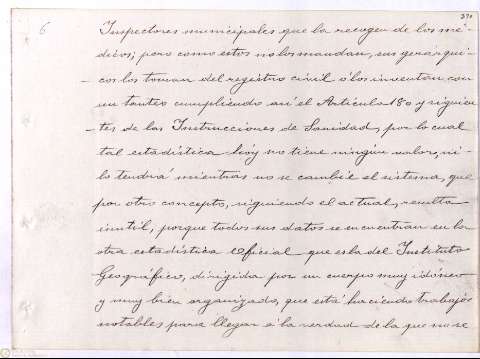 6
370
Inspectores municipales que la recogen de los mé-
dicos; pero como estos no los mandan, sus gerarqui-
cos los toman del registro civil ó los inventan con
un tanteo cumpliendo así el Artículo 180 y siguien-
tes de las Instrucciones de Sanidad, por lo cual
tal estadística hoy no tiene ningún valor, ni
lo tendrá mientras no se cambie el sistema, que
por otro concepto, siguiendo el actual, resulta
inutil, porque todos sus datos se encuentran en la
otra estadística Oficial que es la del Instituto
Geográfico, dirigida por un cuerpo muy idóneo
y muy bien organizado, que está haciendo trabajos
notables para llegar á la verdad de la que no se